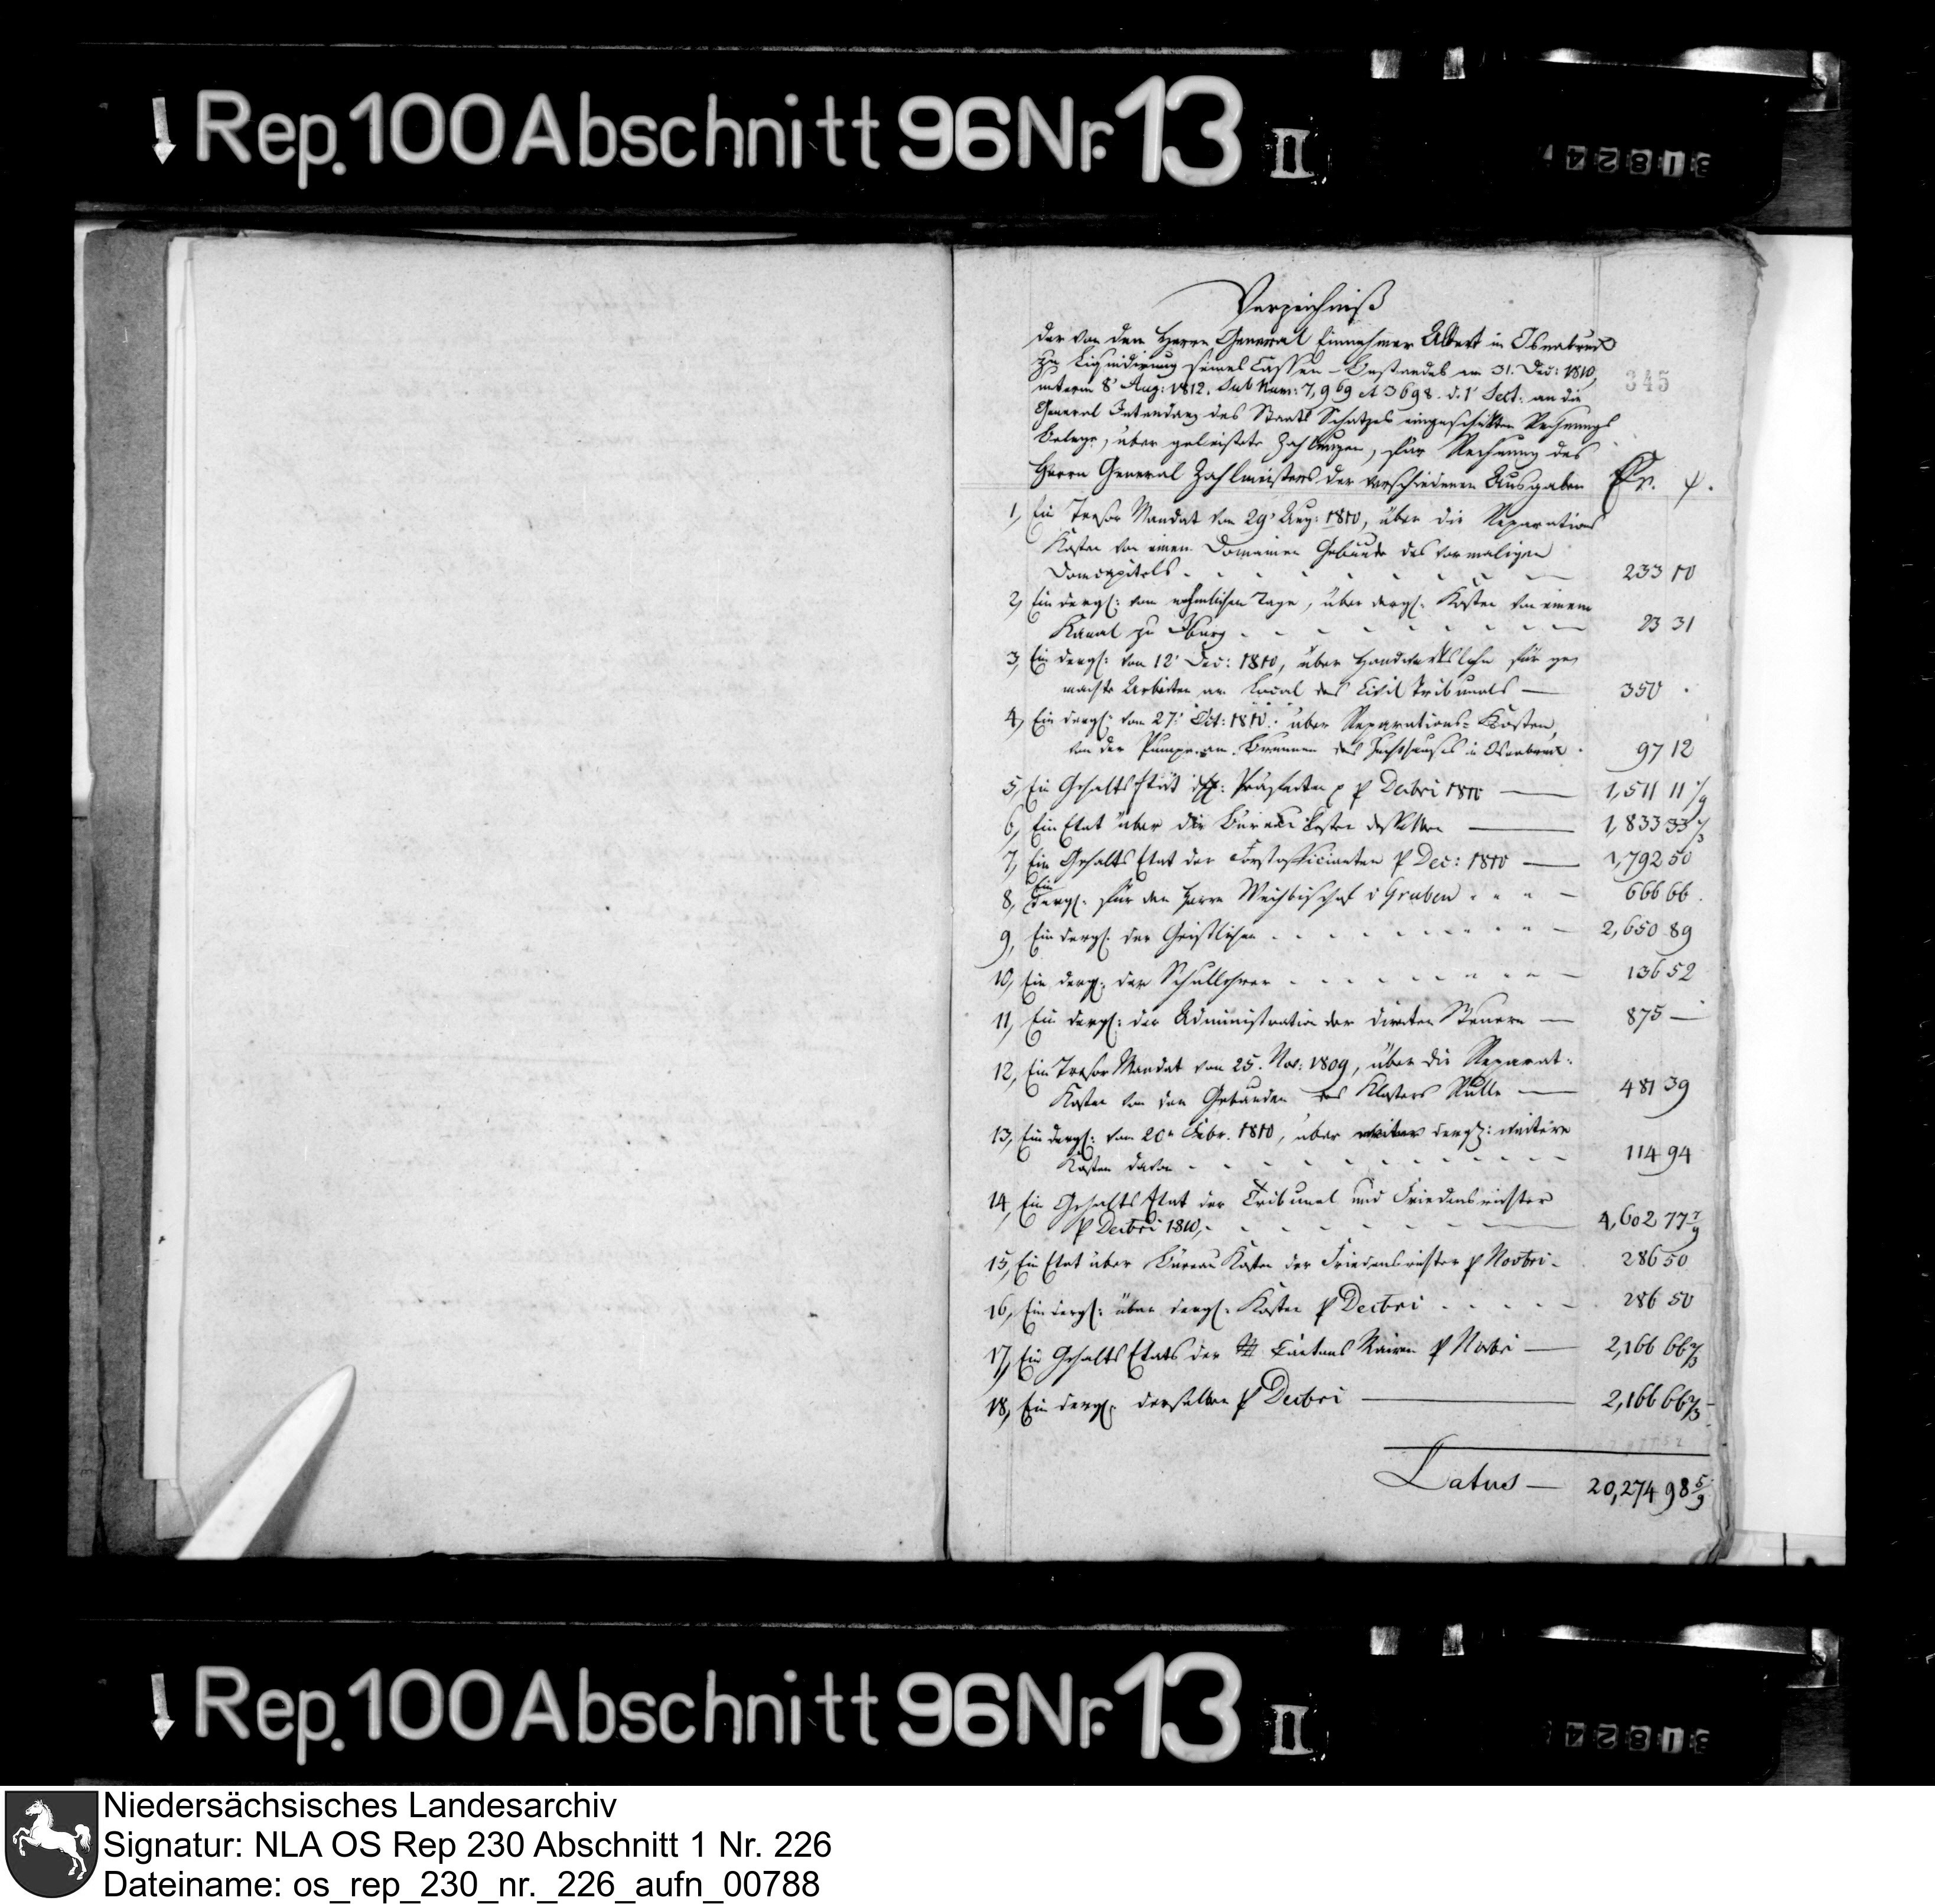 Rep. 100 Abschnitt 96 Nr. 13 II
31824
Verzeichniß
der von dem Herrn General Einnehmer Albert in Osnabruck
zu Liquidirung seines Cassen-Bestandes am 31. Dec: 1810,
unterm 8' Aug: 1812. sub Num: 7,969 et 3698. d. 1' Sect: an die
345
General Intendanz des Staats Schatzes eingeschikten Rechnungs
Belege, über geleistete Zahlungen, für Rechnung des
Herrn General Zahlmeisters der verschiedenen Ausgaben Fr.
1, Ein Tresor Mandat vom 29' Aug: 1810, über die Reparations
Kosten von einem Domainen Gebäude des vormaligen
Domcapitels - 233 10
2, Ein dergl: vom nehmlichen Tage, über dergl. Kosten von einem
Kanal zu Iburg - 23 31
3, Ein dergl: vom 12' Dec: 1810, über Handwerkslohn für ge¬
machte Arbeiten am Local des Civil Tribunals — 350 .
4, Ein dergl: vom 27' Oct: 1810. über Reparations-Kosten,
von der Pumpe am Brunnen des Zuchthauses in Osnabruck . 97 12
5, Ein Gehalts Etat des Präfecten p Decbri 1810 — 1,511 11 1/9
6, Ein Etat über die Bureau Kosten desselben — 1,833 33 1/3
7, Ein Gehalts Etat der Forstofficianten p Dec: 1810 — 1,792 50
8, Ein dergl. für den Herrn Weihbischof v Gruben - 666 66.
9, Ein dergl. der Geistlichen - 2,650 89
10, Ein dergl. der Schullehrer - 136 52
11, Ein dergl: der Administration der directen Steuern — 875 —
12, Ein Tresor Mandat vom 25. Nov: 1809, über die Reparat:
Kosten von den Gebäuden des Klosters Rulle — 481 39
13, Ein dergl: vom 20n Febr. 1810, über dergl: weitere
Kosten davon - 114 94
14, Ein Gehalts Etat der Tribunal und Friedensrichter
p Decbri 1810, - 4,602 77 7/9
15, Ein Etat über Büreau Kosten der Friedensrichter p Novbri - 286 50
16, Ein dergl: über dergl. Kosten p Decbri - 286 50
17, Ein Gehalts Etats der Cantons Mairen p Novbri — 2,166 66 2/3
18, Ein dergl. derselben p Decbri — 2,166 66 2/3
Latus — 20,274 98 5/9
Rep. 100 Abschnitt 96 Nr. 13 II
31824
Niedersächsisches Landesarchiv
Signatur: NLA OS Rep 230 Abschnitt 1 Nr. 226
Dateiname: os_rep_230_nr._226_aufn_00788